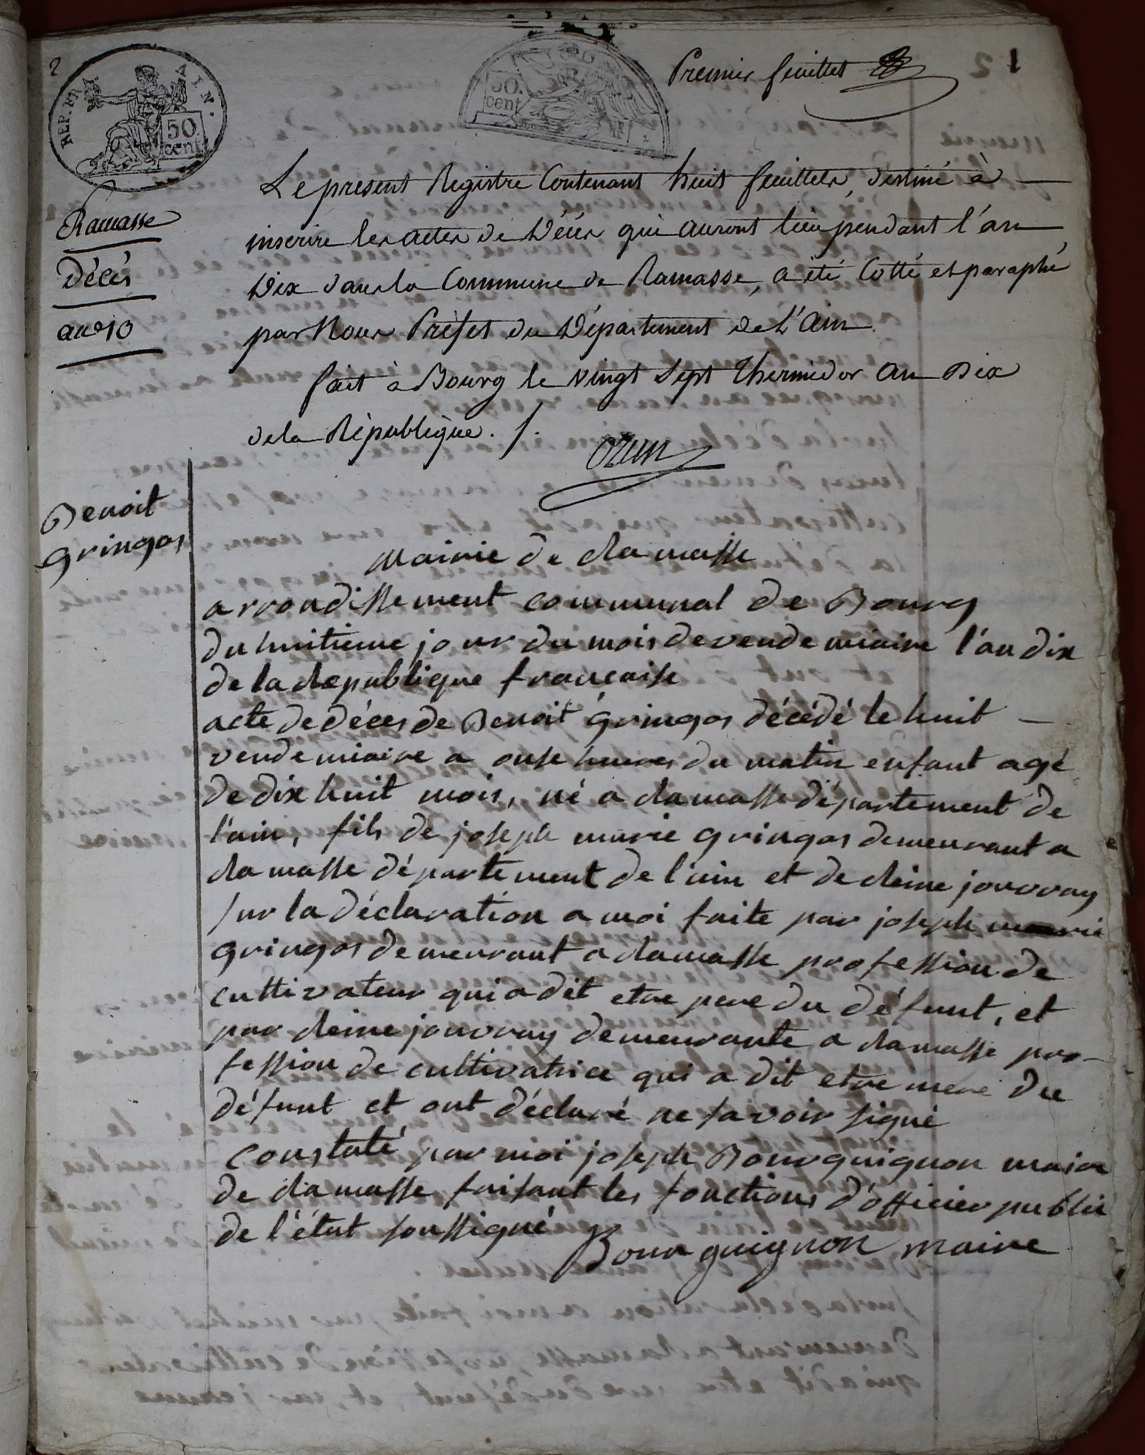 2
REP. FRA
AIN.
50.
cent
50.
cent
Premier feuillet
1
Ramasse
Décés
an 10
Le présent Registre Contenant huit feuillets, destiné à
inscrire les actes de Décès qui auront lieu pendant l'an
Dix dans la Commune de Ramasse, a été Cotté et paraphé
par Nous Préfet du Département de L'Ain.
fait à Bourg le vingt Sept Thermidor An Dix
de la République. /.
Ozun
Benoit
gringos
Mairie de Ramasse
arrondissement communal de Bourg
du huitieme jour du mois de vendemiaire l'an dix
de la Republique francaise
acte de déces de Benoit gringos décédé le huit
vendemiaire a onse heures du matin enfant agé
de dix huit mois, né a Ramasse département de
l'ain, fils de joseph marie gringos demeurant a
Ramasse département de l'ain et de Reine jouvray
sur la déclaration a moi faite par joseph marie
gringos demeurant a Ramasse profession de
cultivateur qui a dit etre pere du défunt, et
par Reine jouvray demeurante a Ramasse pro-
fession de cultivatrice qui a dit etre mere du
défunt et ont déclaré ne savoir signé
constaté par moi joseph Bourguignon maire
de Ramasse faisant les fonctions d'officier public
de l'état soussigné Bourguignon maire